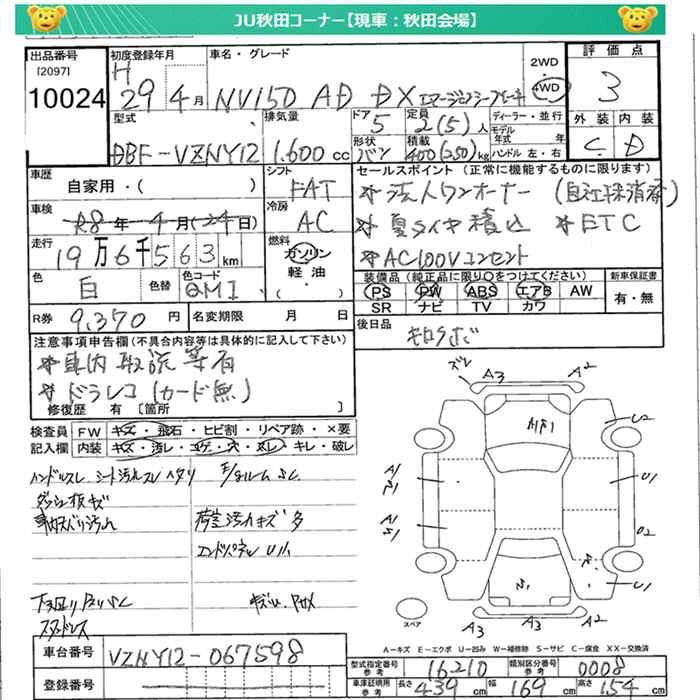 JU秋田コーナー【現車:秋田会場】
出品番号
[2097]
10024
初度登録年月
H 29年 4月
車名・グレード
NV150 AD DX エマージェンシーブレーキ
2WD
・
4WD
評価点
3
外装 内装
C D
型式
DBF-VZNY12
排気量
1.600 cc
ドア
5
形状
バン
定員
2(5)人
積載
400(250)kg
ディーラー・並行
モデル年式 年
ハンドル 左・右
車歴
自家用・( )
シフト
FAT
車検
R8年 4月(24日)
冷房
AC
走行
19万6千563km
燃料
ガソリン
軽油
・( )
色
白
色替
色コード
QM1
R券
9,370円
名変期限 月 日
セールスポイント(正常に機能するものに限ります)
*法人ワンオーナー(自社抹消済)
*夏タイヤ積込 *ETC
*AC100Vコンセント
装備品(純正品に限り○をつけてください)
PS PW ABS エアB AW
SR ナビ TV カワ
新車保証書
有・無
後日品
注意事項申告欄(不具合内容等は具体的に記入して下さい)
*車内 取説 等有
*ドラレコ(カード無)
修復歴 有[箇所 ]
検査員記入欄
FW キズ・飛石・ヒビ割・リペア跡・×要
内装 キズ・汚レ・コゲ・穴・スレ・キレ・破レ
ハンドルスレ シート汚レスレ ヘタリ
荷室汚れキズ多
エンドパネル U
下廻り
スタッドレス
ズレ
A3
A2
U2
A1
U1
A1
S1
U1
A3
A3
A2
スペア
A-キズ E-エクボ U-凹み W-補修跡 S-サビ C-腐食 XX-交換済
車台番号
VZNY12-067598
登録番号
型式指定番号 参考
16210
類別区分番号 参考
0008
車庫証明用 参考
長さ 439cm 幅 169cm 高さ 154cm